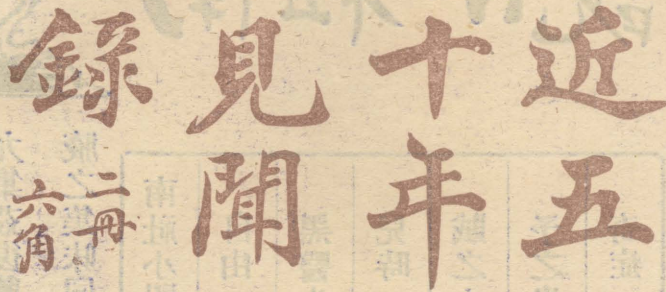 近五
十年
見聞
錄
二冊
六角